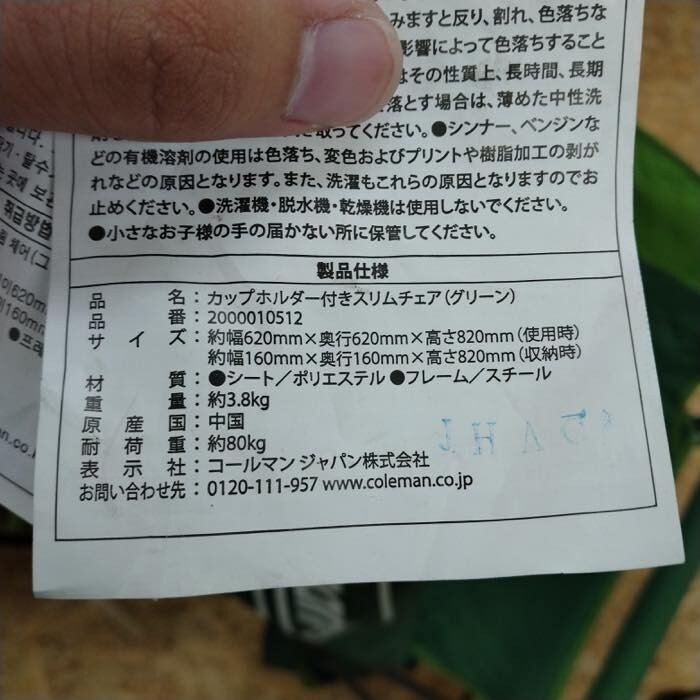 みますと反り、割れ、色落ちな
影響によって色落ちすること
はその性質上、長時間、長期
落とす場合は、薄めた中性洗
取ってください。●シンナー、ベンジンな
どの有機溶剤の使用は色落ち、変色およびプリントや樹脂加工の剥が
れなどの原因となります。また、洗濯もこれらの原因となりますのでお
止めください。●洗濯機・脱水機・乾燥機は使用しないでください。
●小さなお子様の手の届かない所に保管してください。
製品仕様
品名：カップホルダー付きスリムチェア（グリーン）
品番：2000010512
サイズ：約幅620mm×奥行620mm×高さ820mm（使用時）
約幅160mm×奥行160mm×高さ820mm（収納時）
材質：●シート／ポリエステル ●フレーム／スチール
重量：約3.8kg
原産国：中国
耐荷重：約80kg
表示社：コールマン ジャパン株式会社
お問い合わせ先：0120-111-957 www.coleman.co.jp